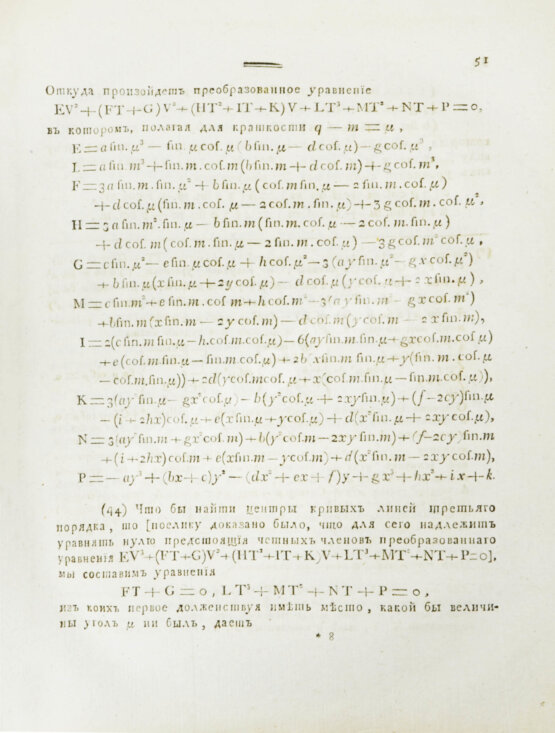 51
Откуда произойдетъ преобразованное уравненіе
EV³+(FT+G)V²+(HT²+IT+K)V+LT³+MT²+NT+P=0,
въ которомъ, полагая для краткости q — m = μ,
E=a ſin.μ³— ſin.μ coſ.μ(b ſin.μ— d coſ.μ)—g coſ.μ³,
L=a ſin m³+ſin.m.coſ.m(b ſin.m+d coſ.m)+g coſ.m³,
F=3a ſin.m.ſin.μ²+b ſin.μ(coſ.m ſin.μ—2 ſin.m.coſ.μ)
+d coſ.μ(ſin.m.coſ.μ—2 coſ.m.ſin.μ)+3g coſ.m.coſ.μ²,
H=3a ſin.m².ſin.μ—b ſin.m(ſin.m.coſ.μ—2 coſ.m.ſin.μ)
+d coſ.m(coſ.m.ſin.μ—2 ſin.m.coſ.μ)—3g coſ.m² coſ.μ,
G=c ſin.μ²—e ſin.μ coſ.μ+h coſ.μ²—3(ay ſin.μ²—gx coſ.μ²)
+b ſin.μ(x ſin.μ+2y coſ.μ)—d coſ.μ(y coſ.μ+2x ſin.μ),
M=c ſin.m²+e ſin.m.coſ m+h coſ.m²—3(ay ſin.m²—gx coſ.m²)
+b ſin.m(x ſin.m—2y coſ.m)—d coſ.m(y coſ.m—2x ſin.m),
I=2(c ſin.m ſin.μ—h.coſ.m.coſ.μ)—6(ay ſin.m.ſin.μ+gx coſ.m.coſ.μ)
+e(coſ.m.ſin.μ—ſin.m.coſ.μ)+2b(x ſin.m ſin.μ+y(ſin.m.coſ.μ
—coſ.m.ſin.μ))+2d(y coſ.m coſ.μ+x(coſ.m.ſin.μ—ſin.m.coſ.μ)),
K=3(ay² ſin.μ—gx² coſ.μ)—b(y² coſ.μ+2xy ſin.μ)+(f—2cy)ſin.μ
—(i+2hx)coſ.μ+e(x ſin.μ+y coſ.μ)+d(x² ſin.μ+2xy coſ.μ),
N=3(ay² ſin.m+gx² coſ.m)+b(y² coſ.m—2xy ſin.m)+(f—2cy)ſin.m
+(i+2hx)coſ.m+e(x ſin.m—y coſ.m)+d(x² ſin.m—2xy coſ.m),
P=—ay³+(bx+c)y²—(dx²+ex+f)y+gx³+hx²+ix+k.
(44) Что бы найти центры кривыхъ линей третьяго
порядка, то [поелику доказано было, что для сего надлежитъ
уравнять нулю предстоящія четныхъ членовъ преобразованнаго
уравненія EV³+(FT+G)V²+(HT²+IT+K)V+LT³+MT²+NT+P=0],
мы составимъ уравненія
FT+G=0, LT³+MT²+NT+P=0,
изъ коихъ первое долженствуя имѣть мѣсто, какой бы величи-
ны уголъ μ ни былъ, даетъ
* 8